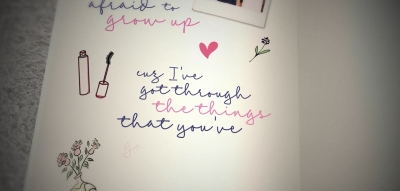 afraid to
grow up
cuz I've
got through
the things
that you've
go